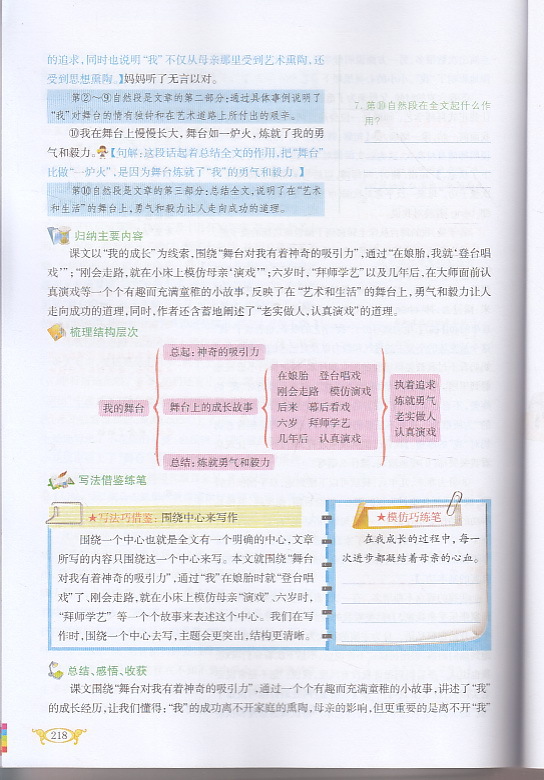 的追求,同时也说明“我”不仅从母亲那里受到艺术熏陶,还
受到思想熏陶。】妈妈听了无言以对。
第②～⑨自然段是文章的第二部分:通过具体事例说明了
“我”对舞台的情有独钟和在艺术道路上所付出的艰辛。
⑩我在舞台上慢慢长大,舞台如一炉火,炼就了我的勇
气和毅力。【句解:这段话起着总结全文的作用,把“舞台”
比做“一炉火”,是因为舞台炼就了“我”的勇气和毅力。】
第⑩自然段是文章的第三部分:总结全文,说明了在“艺术
和生活”的舞台上,勇气和毅力让人走向成功的道理。
7. 第⑩自然段在全文起什么作
用?
归纳主要内容
课文以“我的成长”为线索,围绕“舞台对我有着神奇的吸引力”,通过“在娘胎,我就‘登台唱
戏’”;“刚会走路,就在小床上模仿母亲‘演戏’”;六岁时,“拜师学艺”以及几年后,在大师面前认
真演戏等一个个有趣而充满童稚的小故事,反映了在“艺术和生活”的舞台上,勇气和毅力让人
走向成功的道理,同时,作者还含蓄地阐述了“老实做人,认真演戏”的道理。
梳理结构层次
我的舞台
总起:神奇的吸引力
舞台上的成长故事
在娘胎 登台唱戏
刚会走路 模仿演戏
后来 幕后看戏
六岁 拜师学艺
几年后 认真演戏
总结:炼就勇气和毅力
执着追求
炼就勇气
老实做人
认真演戏
写法借鉴练笔
★写法巧借鉴:围绕中心来写作
围绕一个中心也就是全文有一个明确的中心,文章
所写的内容只围绕这一个中心来写。本文就围绕“舞台
对我有着神奇的吸引力”,通过“我”在娘胎时就“登台唱
戏”了、刚会走路,就在小床上模仿母亲“演戏”、六岁时,
“拜师学艺”等一个个故事来表述这个中心。我们在写
作时,围绕一个中心去写,主题会更突出,结构更清晰。
★模仿巧练笔
在我成长的过程中,每一
次进步都凝结着母亲的心血。
总结、感悟、收获
课文围绕“舞台对我有着神奇的吸引力”,通过一个个有趣而充满童稚的小故事,讲述了“我”
的成长经历,让我们懂得:“我”的成功离不开家庭的熏陶,母亲的影响,但更重要的是离不开“我”
218